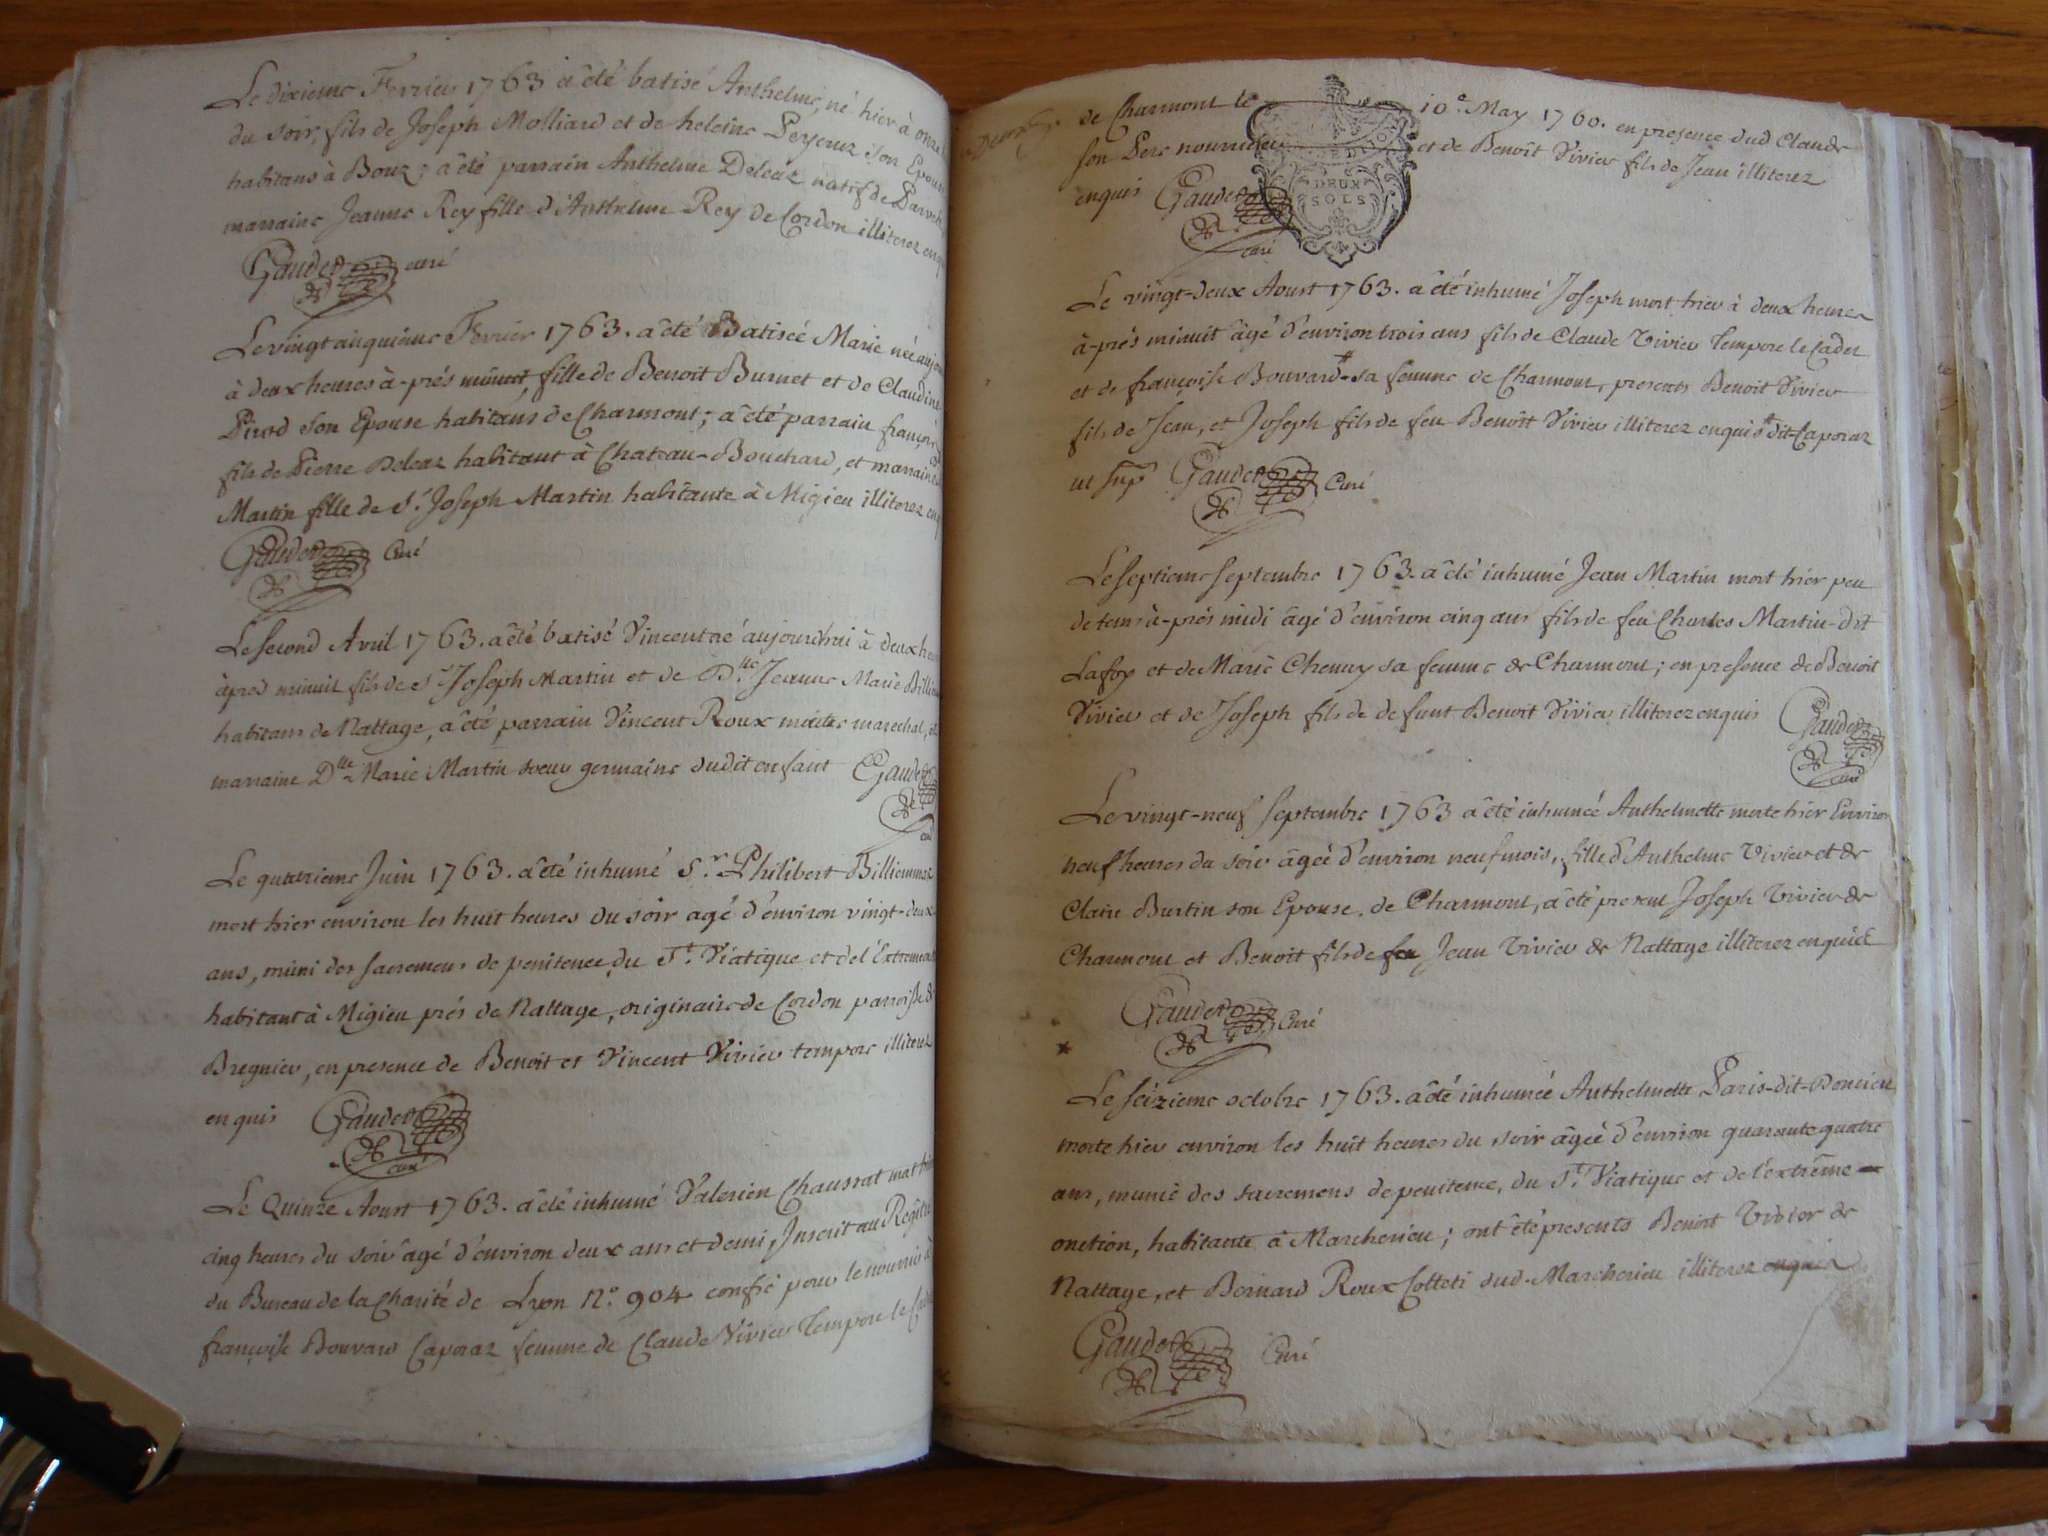 Le dixieme Fevrier 1763 a êté batisé Anthelme, né hier à onze
du soir, fils de Joseph Molliard et de heleine Peyeruz son Epouse
habitans à Bouz; a êté parrain Anthelme Deleaz natif de Parve
marraine Jeanne Rey fille d'Anthelme Rey de Cordon illiterez enq
Gaudet curé
Le vingt cinquieme Fevrier 1763. a êté Batiseé Marie neé aujou
à deux heures à-prés minuit, fille de Benoit Burnet et de Claudine
Pirod son Epouse habitans de Charmont; a êté parrain françois
fils de Pierre Deleaz habitant à Chateau-Bouchard, et marraine
Martin fille de Sr. Joseph Martin habitante à Migieu illiterez enq
Gaudet Curé
Le second Avril 1763. a êté batisé Vincent né aujourdhui à deux heu
àpres minuit fils de Sr Joseph Martin et de Dlle Jeanne Marie Billie
habitans de Nattage, a êté parrain Vincent Roux maitre marechal, et
marraine Dlle Marie Martin soeur germaine dudit enfant Gaudet
curé
Le quatrieme Juin 1763. a êté inhumé Sr. Philibert Billiemaz
mort hier environ les huit heures du soir agé d'environ vingt-deux
ans, muni des sacremens de penitence, du St. Viatique et de l'Extremeon
habitant à Migieu prés de Nattage, originaire de Cordon parroisse de
Bregnier, en presence de Benoit et Vincent Vivier tempore illiterez
enquis Gaudet curé
Le Quinze Aoust 1763. a êté inhumé Valerien Chausrat mort hier
cinq heures du soir âgé d'environ deux ans et demi, Inscrit au Regître
du Bureau de la Charité de Lyon N°. 904 confié pour le nourrir à
françoise Bouvard Caporaz femme de Claude Vivier Tempore le Cadet
de Charmont le 10e. May 1760. en presence dud Claude
son Pere nourricier et de Benoît Vivier fils de Jean illiterez
enquis Gaudet
curé
DEUX
SOLS
Le vingt-deux Aoust 1763. a êté inhumé Joseph mort hier à deux heures
à-prés minuit âgé d'environ trois ans fils de Claude Vivier Tempore le Cadet
et de françoise Bouvard # sa femme de Charmont, presents Benoit Vivier
fils de Jean, et Joseph fils de feu Benoît Vivier illiterez enquis # dit-Caporaz
ut supa Gaudet Curé
Le septieme septembre 1763. a êté inhumé Jean Martin mort hier peu
de tems à-prés midi âgé d'environ cinq ans fils de feu Charles Martin-dit
Laffoy et de Marie Chenuy sa femme de Charmont; en presence de Benoit
Vivier et de Joseph fils de defunt Benoit Vivier illiterez enquis Gaudet
curé
Le vingt-neuf septembre 1763 a êté inhumeé Anthelmette morte hier Environ
neuf heures du soir âgeé d'environ neuf mois, fille d'Anthelme Vivier et de
Clair Burtin son Epouse. de Charmont, a êté present Joseph Vivier de
Charmont et Benoit fils de feu Jean Vivier de Nattage illiterez enquis
Gaudet Curé
Le seizieme octobre 1763. a êté inhumeé Anthelmette Paris-dit-Poncieu
morte hier environ les huit heures du soir âgeé d'environ quarante quatre
ans, munie des sacremens de penitence, du St. Viatique et de l'extrême
onction, habitante à Marcherieu; ont êté presents Benoit Vivier de
Nattage, et Bernard Roux Colleti dud-Marcherieu illiterez enquis
Gaudet Curé